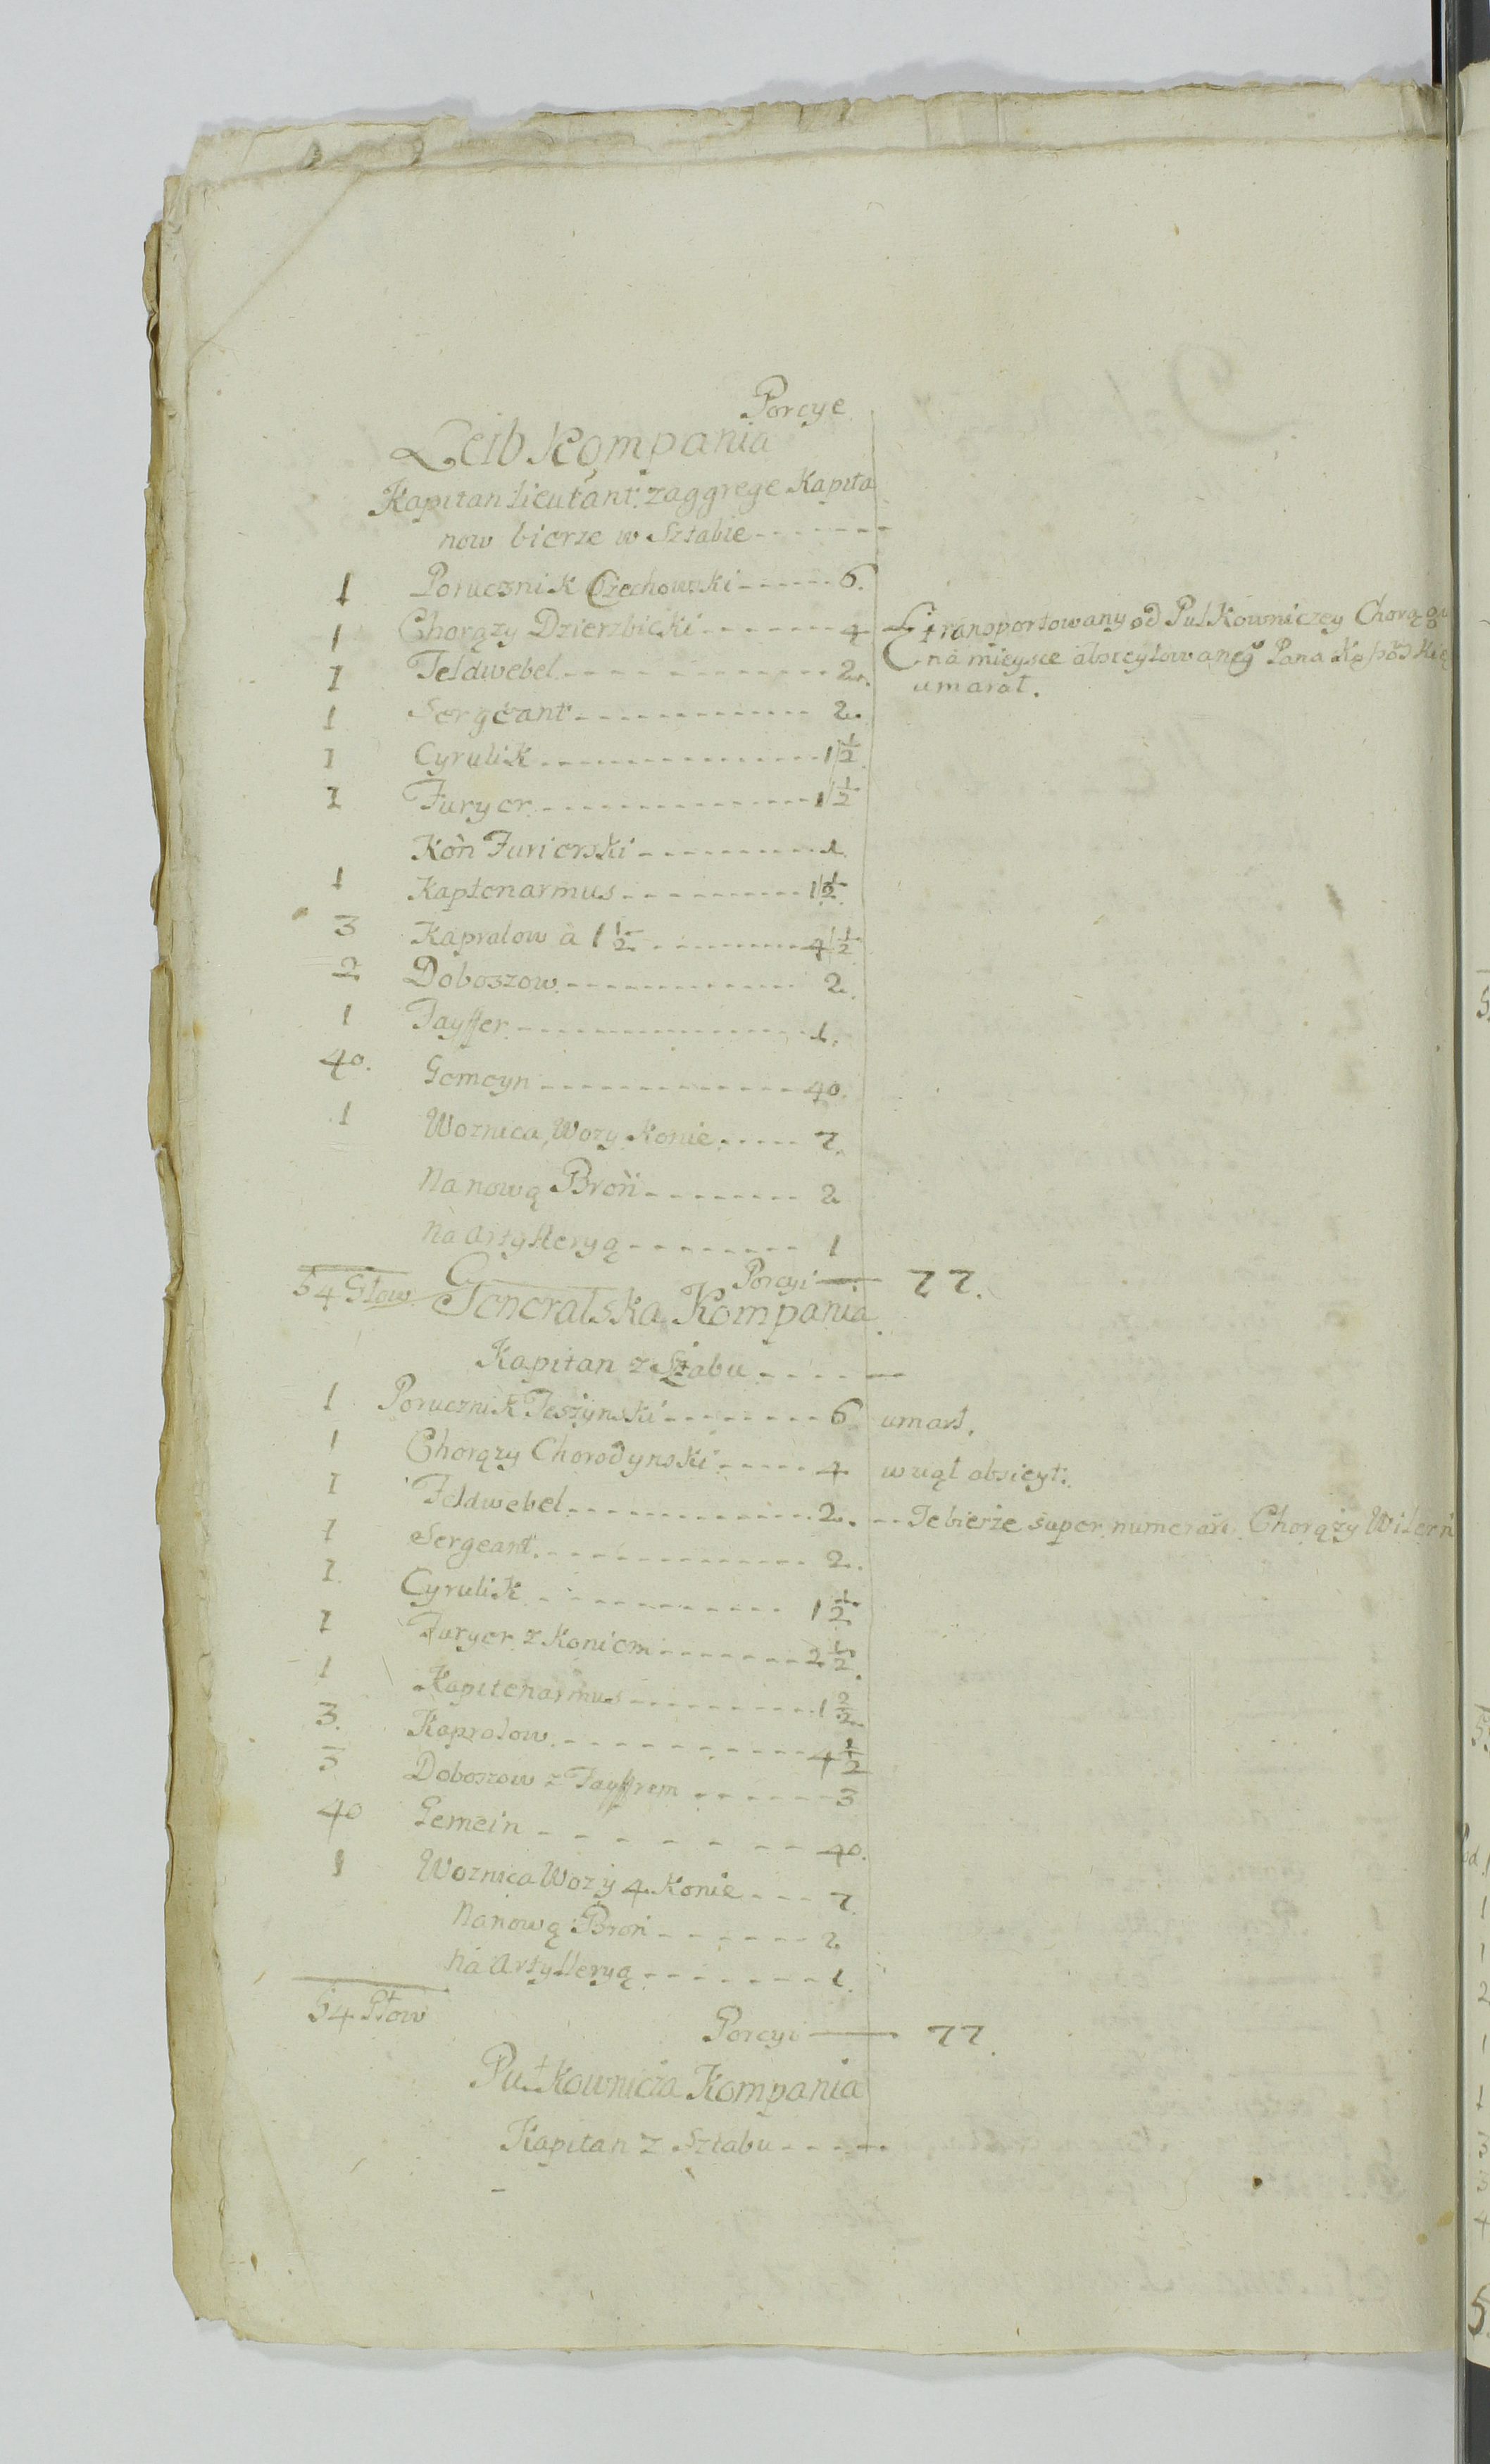 Porcye
Leib Kompania
Kapitan Lieutant: zaggrege Kapita
now bierze w Sztabie - - - - - - -
1 Porucznik Czechowski - - - - - 6.
1 Chorązy Dzierzbicki - - - - - - - 4 transportowany od Pulkowniczey Chorągw
na mieysce abszeytowanego Pana
1 Feldwebel - - - - - - - - - - - - 2. umarał.
1 Sergéant - - - - - - - - - - - - 2.
1 Cyrulik - - - - - - - - - - - - - - 1 1/2
1 Furyer - - - - - - - - - - - - - - 1 1/2
Kon Furierski - - - - - - - - - - 1.
1 Kaptenarmus - - - - - - - - - - 1 1/2.
3 Kapralow a 1 1/2 - - - - - - - - - 4 1/2
2 Doboszow - - - - - - - - - - - - 2.
1 Fayffer - - - - - - - - - - - - - - - 1.
40. Gemeyn - - - - - - - - - - - - - 40.
1 Woznica, Wozy Konie - - - - - 7.
Na nową Broń - - - - - - - - 2
Na Artylleryą - - - - - - - - 1
54 Głow Porcyi — 77.
Generalska Kompania
Kapitan z Sztabu - - - - -
1 Porucznik Jeszynski - - - - - - - - 6 umarł.
1 Chorązy Chorodynski - - - - - 4 wziął abszeyt.
1 Feldwebel - - - - - - - - - - - - 2. - - Te bierze super numerari Chorąży
1 Sergeant - - - - - - - - - - - - 2.
1. Cyrulik - - - - - - - - - - - 1 1/2
1 Furyer z Koniem - - - - - - - 2 1/2.
1 Kapitenarmus - - - - - - - - - 1 2/2
3. Kapralow - - - - - - - - - - 4 1/2
3 Doboszow z Fayffrem - - - - - - 3
40 Gemein - - - - - - - - 40.
1 Woznica Wozy 4 Konie - - - 7.
Na nową Broń - - - - - - 2
Na Artylleryą - - - - - - - 1.
54 Głow
Porcyi — 77.
Pułkownicza Kompania
Kapitan z Sztabu - - - - -